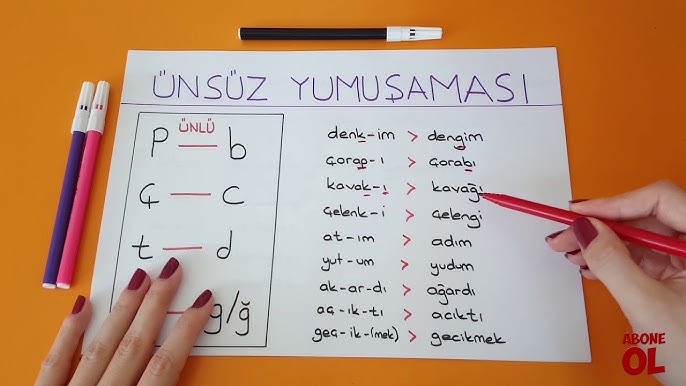 ÜNSÜZ YUMUŞAMASI
ÜNLÜ
p — b
ç — c
t — d
— g/ğ
denk-im > dengim
çorap-ı > çorabı
kavak-ı > kavağı
çelenk-i > çelengi
at-ım > adım
yut-um > yudum
ak-ar-dı > ağardı
aç-ık-tı > acıktı
geç-ik-(mek) > gecikmek
ABONE
OL